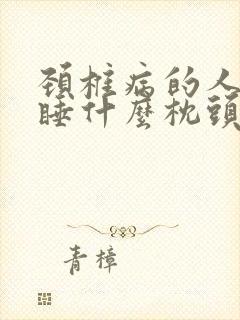 頚椎病的人
睡什麽枕頭
青樟